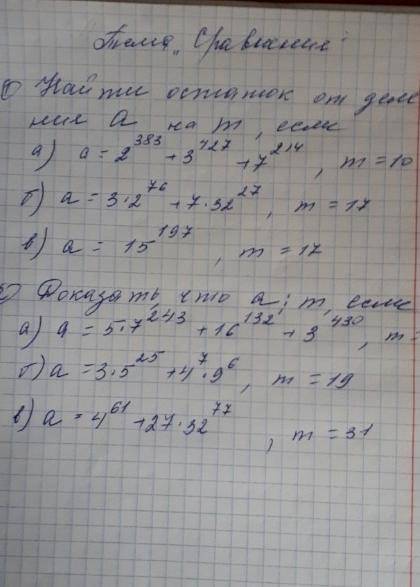 Тема „Сравнение"
Найти остаток от деле
ния a на m, если
а) a = 2^383 + 3^427 + 7^214, m = 10
б) a = 3·2^76 + 7·32^27, m = 17
в) a = 15^197, m = 17
Доказать, что a⋮m, если
а) a = 5·7^243 + 16^132 + 3^430, m =
б) a = 3·5^25 + 4^7·9^6, m = 19
в) a = 4^61 + 27·32^77, m = 31